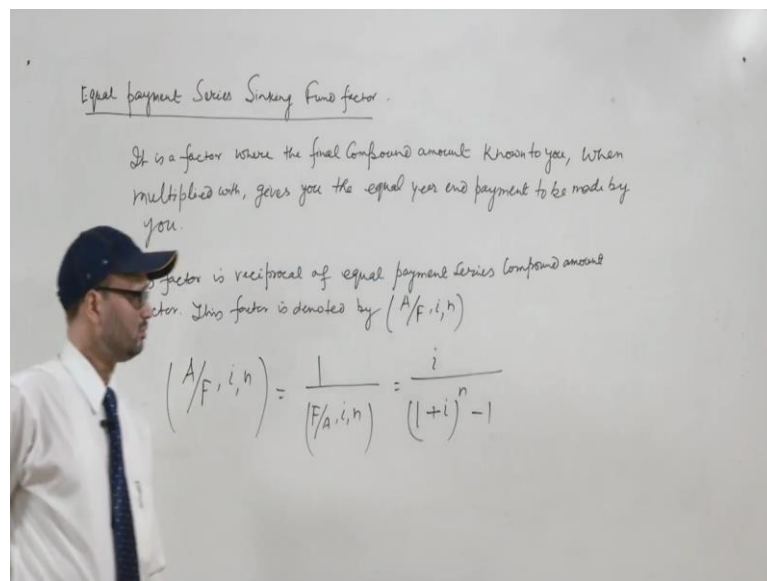 Equal payment Series Sinking Fund factor.
It is a factor where the final Compound amount Known to you, when
multiplied with, gives you the equal year end payment to be made by
you.
factor is reciprocal of equal payment Series Compound amount
ctor. This factor is denoted by (A/F, i, n)
(A/F, i, n) = 1/(F/A, i, n) = i/((1+i)^n - 1)